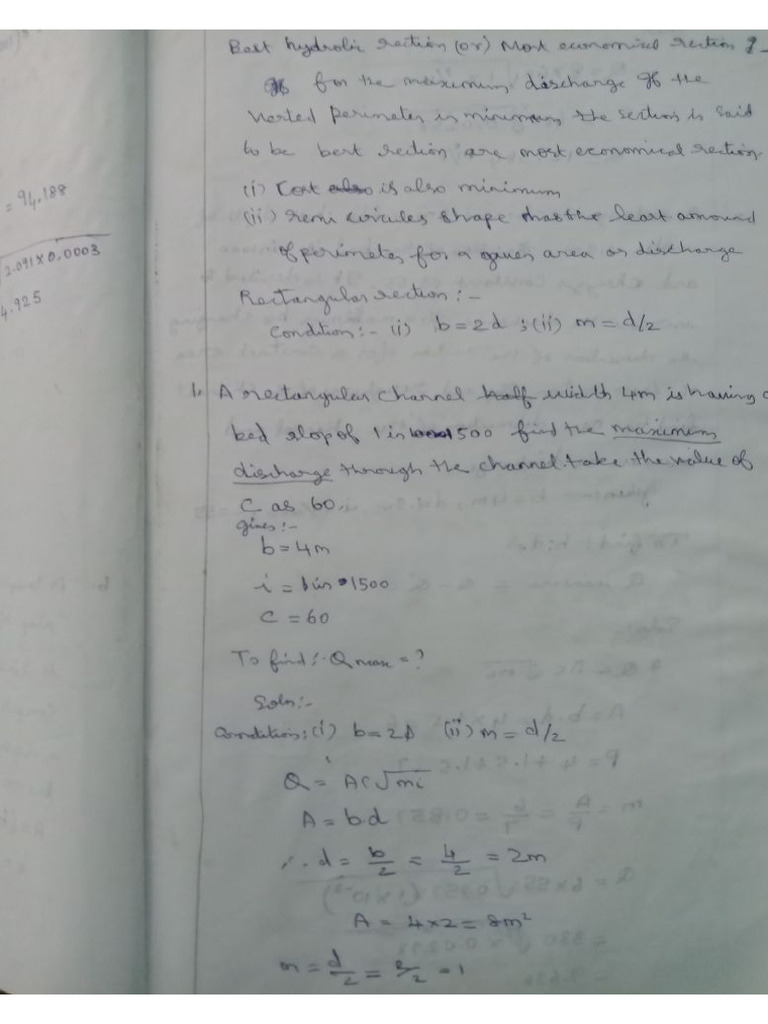 = 94.188
2.091 x 0.0003
4.925
Best hydrolic section (or) Most economical section :-
for the maximum discharge of the
Werted Perimeter is minimum, the section is said
to be best section are most economical section.
(i) Cost is also minimum
(ii) semi circules shape has the least amound
of perimeter for a given area or discharge
Rectangular section :-
Condition :- (i) b = 2d ; (ii) m = d/2
1. A rectangular channel half width 4m is having a
bed slop of 1 in 1500 find the maximum
discharge through the channel. take the value of
C as 60.
given :-
b = 4m
i = 1 in 1500
C = 60
To find :- Q max = ?
Soln :-
Condition : (i) b = 2d (ii) m = d/2
Q = AC √mi
A = b.d
∴ d = b/2 = 4/2 = 2m
A = 4 x 2 = 8m²
m = d/2 = 2/2 = 1